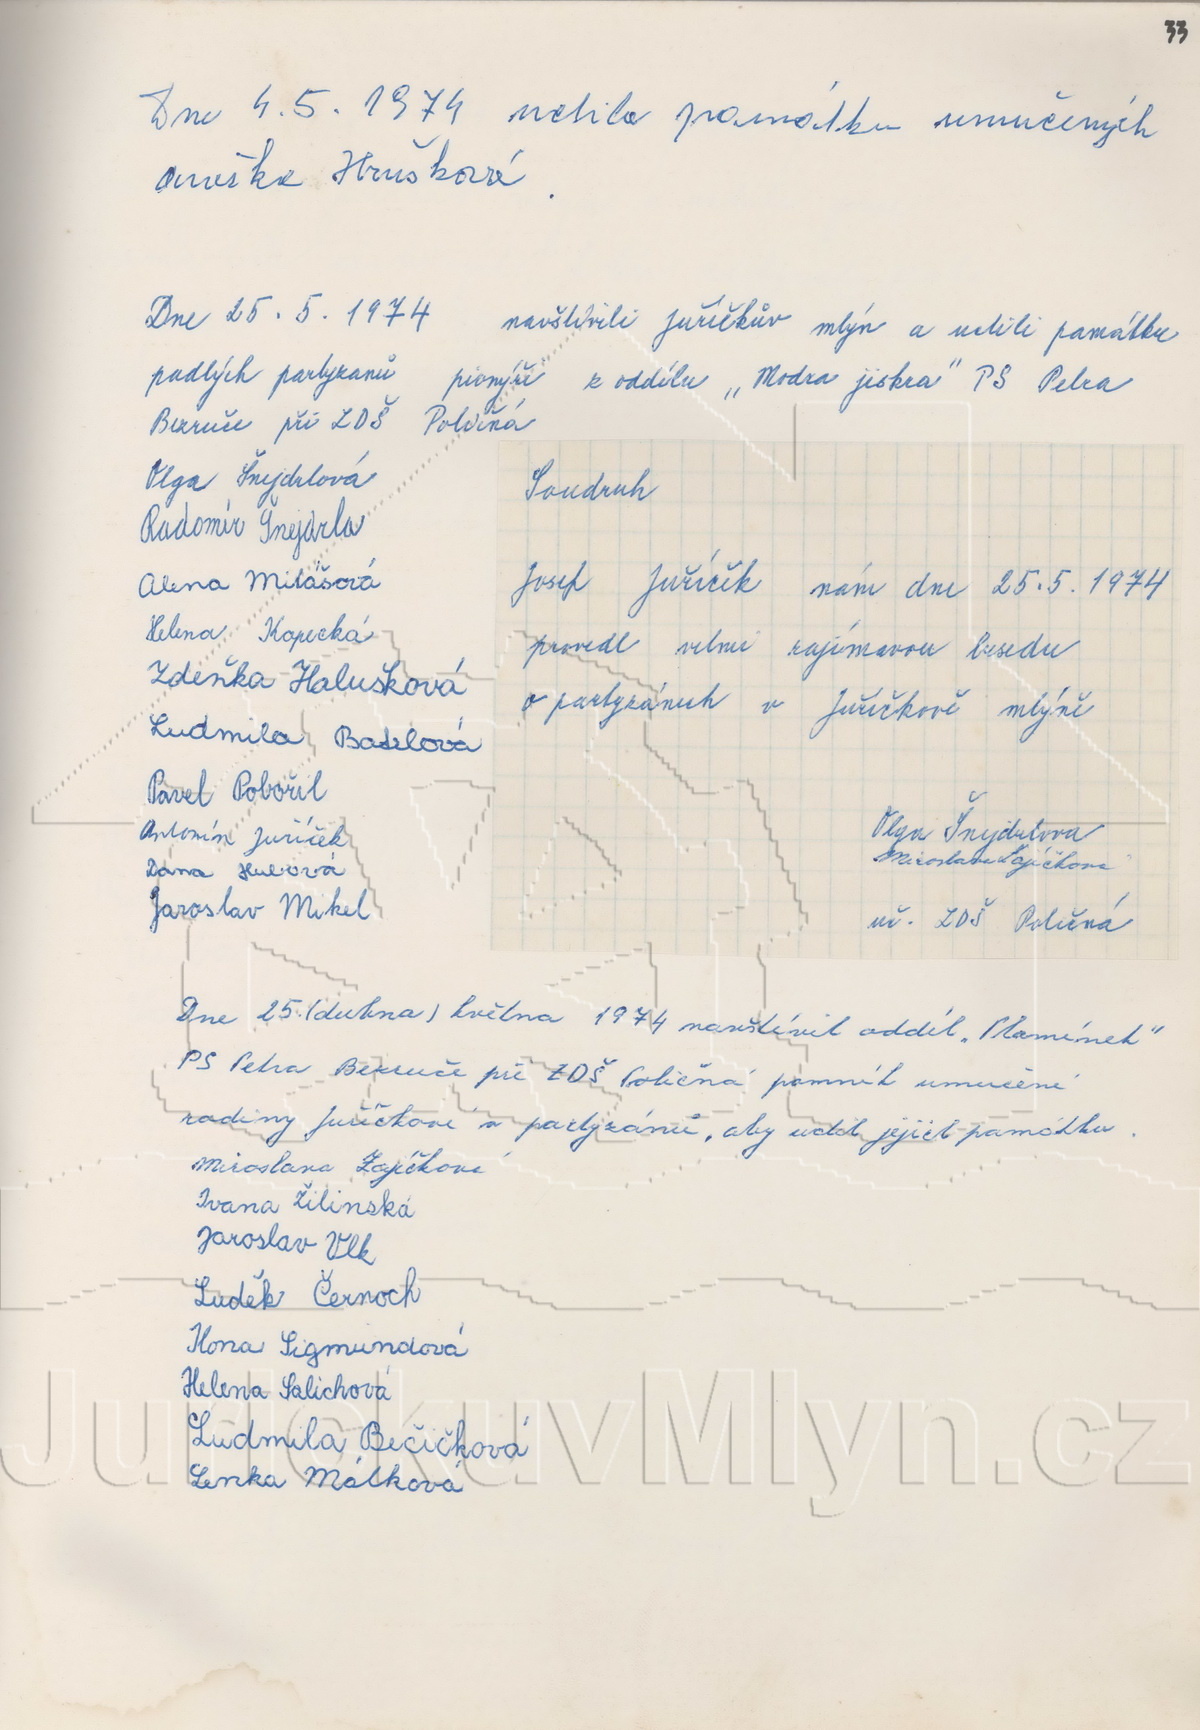 33
Dne 4.5. 1974 uctila památku umučených
Hrušková.
Dne 25.5.1974 navštívili Juříčkův mlýn a uctili památku
padlých partyzanů pionýři z oddílu „Modra jiskra" PS Petra
Bezruče při ZDŠ Poličná
Olga Šnejdrlová
Radomír Šnejdrla
Alena Mikášová
Helena Kopecká
Zdeňka Halušková
Ludmila
Pavel Pobořil
Antonín Juříček
Dana
Jaroslav Mikel
Soudruh
Josef Juříček nám dne 25.5.1974
provedl velmi zajímavou besedu
o partyzánech v Juříčkově mlýně
Olga Šnejdrlova
Miroslava Zajíčková
uč. ZDŠ Poličná
Dne 25.(dubna) května 1974 navštívil oddíl „Plamínek"
PS Petra Bezruče při ZDŠ Poličná pomník umučené
rodiny Juříčkové a partyzánů, aby uctil jejich památku.
Miroslava Zajíčková
Ivana Žilinská
Jaroslav Vlk
Luděk Černoch
Ilona Sigmundová
Helena Salichová
Ludmila Bečičková
Lenka Málková
JurickuvMlyn.cz